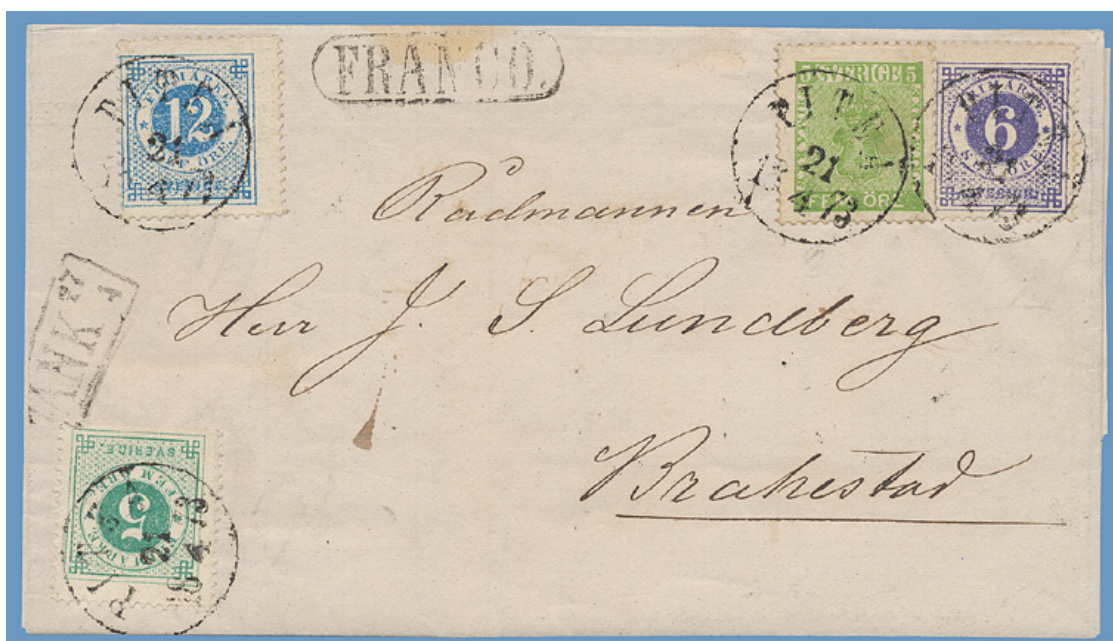 FRIMÄRKE
12
TOLF ÖRE.
SVERIGE.
PITEÅ
21
4
FRANCO.
5 SVERIGE 5
FEM ÖRE
PITEÅ
21
4
1873
6
SEX ÖRE
SVERIGE.
Rådmannen
Herr J. S. Lundberg
Brahestad
ANK
SVERIGE.
FEM ÖRE
5
FRIMÄRKE
PITEÅ
21
4
1873